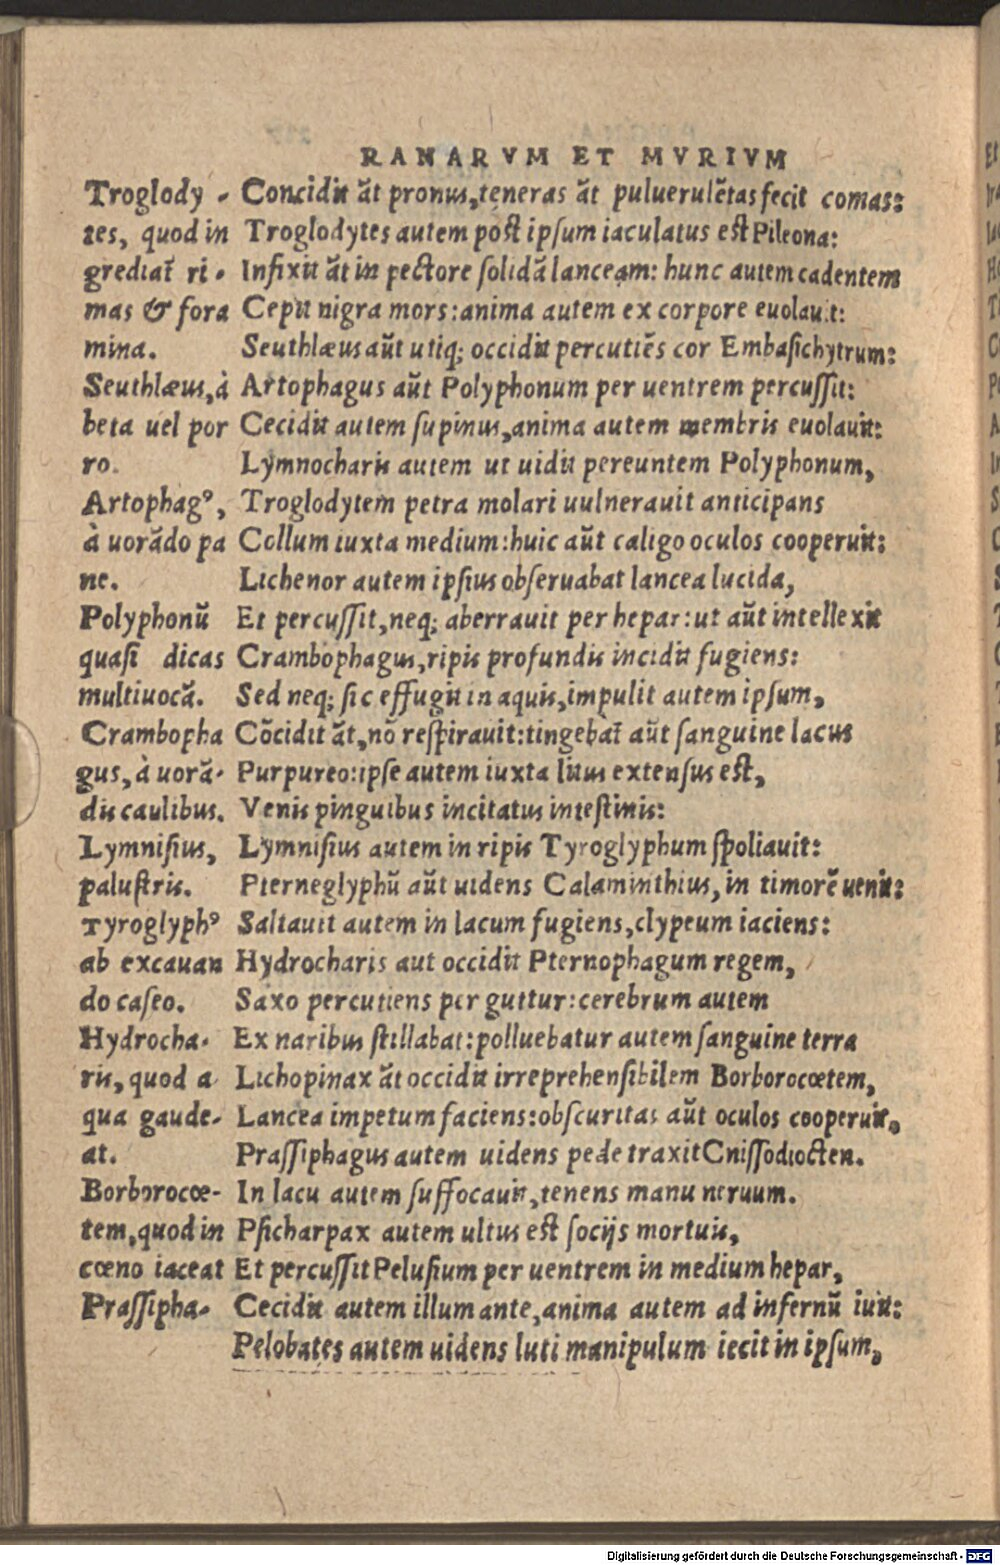 RANARVM ET MVRIVM
Troglody-
tes, quod in
grediat̃ ri-
mas & fora
mina.
Seuthlæus, à
beta uel por
ro.
Artophagꝰ,
à uorãdo pa
ne.
Polyphonũ
quasi dicas
multiuocã.
Crambopha
gus, à uorã-
dis caulibus.
Lymnisius,
palustris.
Tyroglyphꝰ
ab excauan
do caseo.
Hydrocha-
ris, quod a
qua gaude-
at.
Borborocœ-
tem, quod in
cœno iaceat
Prassipha-
Concidit ãt pronus, teneras ãt puluerulẽtas fecit comas:
Troglodytes autem post ipsum iaculatus est Pileona:
Infixit ãt in pectore solidã lanceam: hunc autem cadentem
Cepit nigra mors: anima autem ex corpore euolauit:
Seuthlæus aũt utiq; occidit percutiẽs cor Embasichytrum:
Artophagus aũt Polyphonum per uentrem percussit:
Cecidit autem supinus, anima autem membris euolauit:
Lymnocharis autem ut uidit pereuntem Polyphonum,
Troglodytem petra molari uulnerauit anticipans
Collum iuxta medium: huic aũt caligo oculos cooperuit:
Lichenor autem ipsius obseruabat lancea lucida,
Et percussit, neq; aberrauit per hepar: ut aũt intellexit
Crambophagus, ripis profundis incidit fugiens:
Sed neq; sic effugit in aquis, impulit autem ipsum,
Cõcidit ãt, nõ respirauit: tingebat̃ aũt sanguine lacus
Purpureo: ipse autem iuxta litus extensus est,
Venis pinguibus incitatus intestinis:
Lymnisius autem in ripis Tyroglyphum spoliauit:
Pterneglyphũ aũt uidens Calaminthius, in timorẽ uenit:
Saltauit autem in lacum fugiens, clypeum iaciens:
Hydrocharis aut occidit Pternophagum regem,
Saxo percutiens per guttur: cerebrum autem
Ex naribus stillabat: polluebatur autem sanguine terra
Lichopinax ãt occidit irreprehensibilem Borborocœtem,
Lancea impetum faciens: obscuritas aũt oculos cooperuit,
Prassiphagus autem uidens pede traxit Cnissodiocten.
In lacu autem suffocauit, tenens manu neruum.
Psicharpax autem ultus est socijs mortuis,
Et percussit Pelusium per uentrem in medium hepar,
Cecidit autem illum ante, anima autem ad infernũ iuit:
Pelobates autem uidens luti manipulum iecit in ipsum,
Digitalisierung gefördert durch die Deutsche Forschungsgemeinschaft - DFG